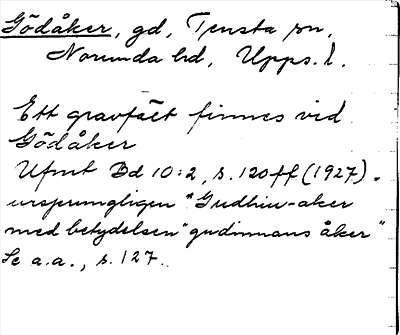 Gödåker, gd, Tensta sn,
Norunda hd, Upps. l.
Ett gravfält finnes vid
Gödåker
Ufmt Bd 10:2, s. 120 ff (1927).
ursprungligen "Gudhiu-aker
med betydelsen "gudinnans åker"
Se a.a., s. 127.